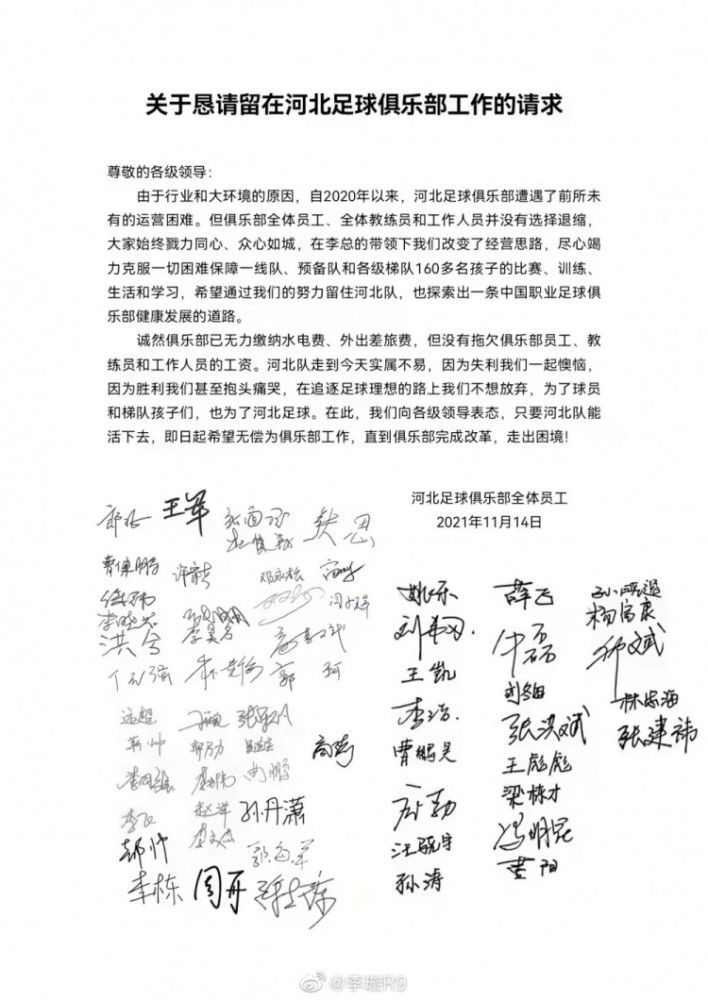 关于恳请留在河北足球俱乐部工作的请求
尊敬的各级领导：
由于行业和大环境的原因，自2020年以来，河北足球俱乐部遭遇了前所未
有的运营困难。但俱乐部全体员工、全体教练员和工作人员并没有选择退缩，
大家始终戮力同心、众心如城，在李总的带领下我们改变了经营思路，尽心竭
力克服一切困难保障一线队、预备队和各级梯队160多名孩子的比赛、训练、
生活和学习，希望通过我们的努力留住河北队，也探索出一条中国职业足球俱
乐部健康发展的道路。
诚然俱乐部已无力缴纳水电费、外出差旅费，但没有拖欠俱乐部员工、教
练员和工作人员的工资。河北队走到今天实属不易，因为失利我们一起懊恼，
因为胜利我们甚至抱头痛哭，在追逐足球理想的路上我们不想放弃，为了球员
和梯队孩子们，也为了河北足球。在此，我们向各级领导表态，只要河北队能
活下去，即日起希望无偿为俱乐部工作，直到俱乐部完成改革，走出困境！
河北足球俱乐部全体员工
2021年11月14日
王军
曹保鹏
李晓芯
洪兮
郭珂
姚乐
薛飞
杨富康
王凯
李浩
曹鹏昊
张洪斌
林忠海
张建祎
王彪彪
梁栋才
冯明昆
黄阳
汪骁宇
孙涛
远超
高嵩
曲鹏
赵洋
孙丹潇
郝帅
郭海军
李栋
周开
@李璇R9